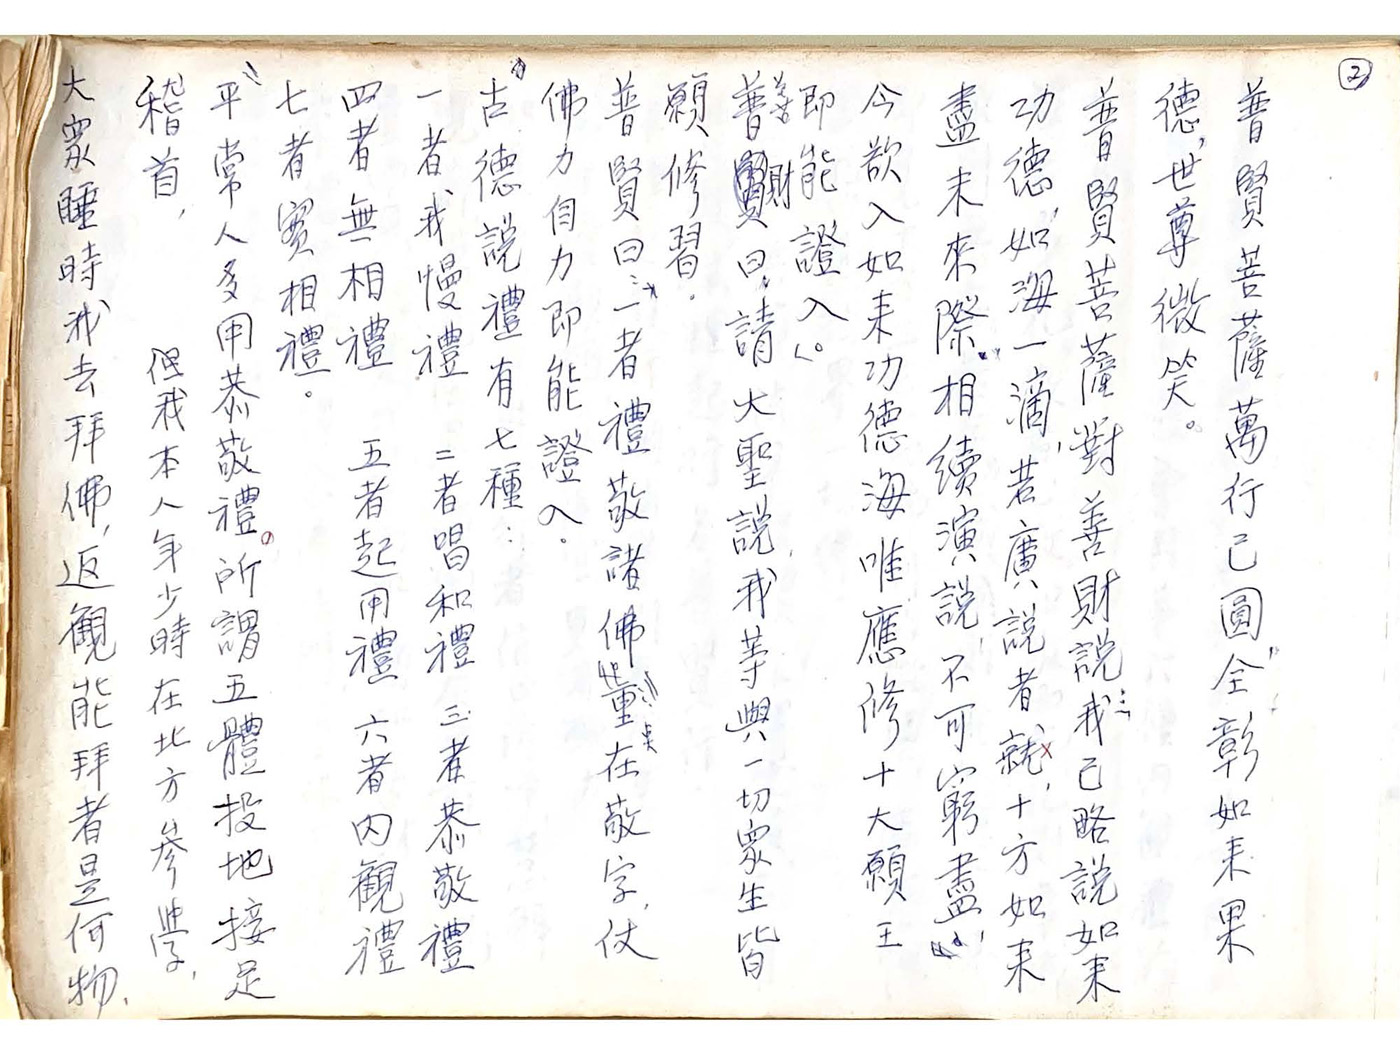 ②
普賢菩薩萬行已圓全彰如來果
德,世尊微笑。
普賢菩薩對善財說我已略說如來
功德,如海一滴,若廣說者就,十方如來
盡未來際,相續演說,不可窮盡,
今欲入如來功德海唯應修十大願王
即能證入。
善財
普賢曰,請大聖說,我等與一切眾生皆
願修習.
普賢曰:一者禮敬諸佛重在敬字,仗
佛力自力即能證入.
古德說禮有七種:
一者我慢禮 二者唱和禮 三者恭敬禮
四者無相禮 五者起用禮 六者內觀禮
七者實相禮。
平常人多用恭敬禮。所謂五體投地接足
稽首, 但我本人年少時在北方參學,
大眾睡時我去拜佛,返觀能拜者是何物,